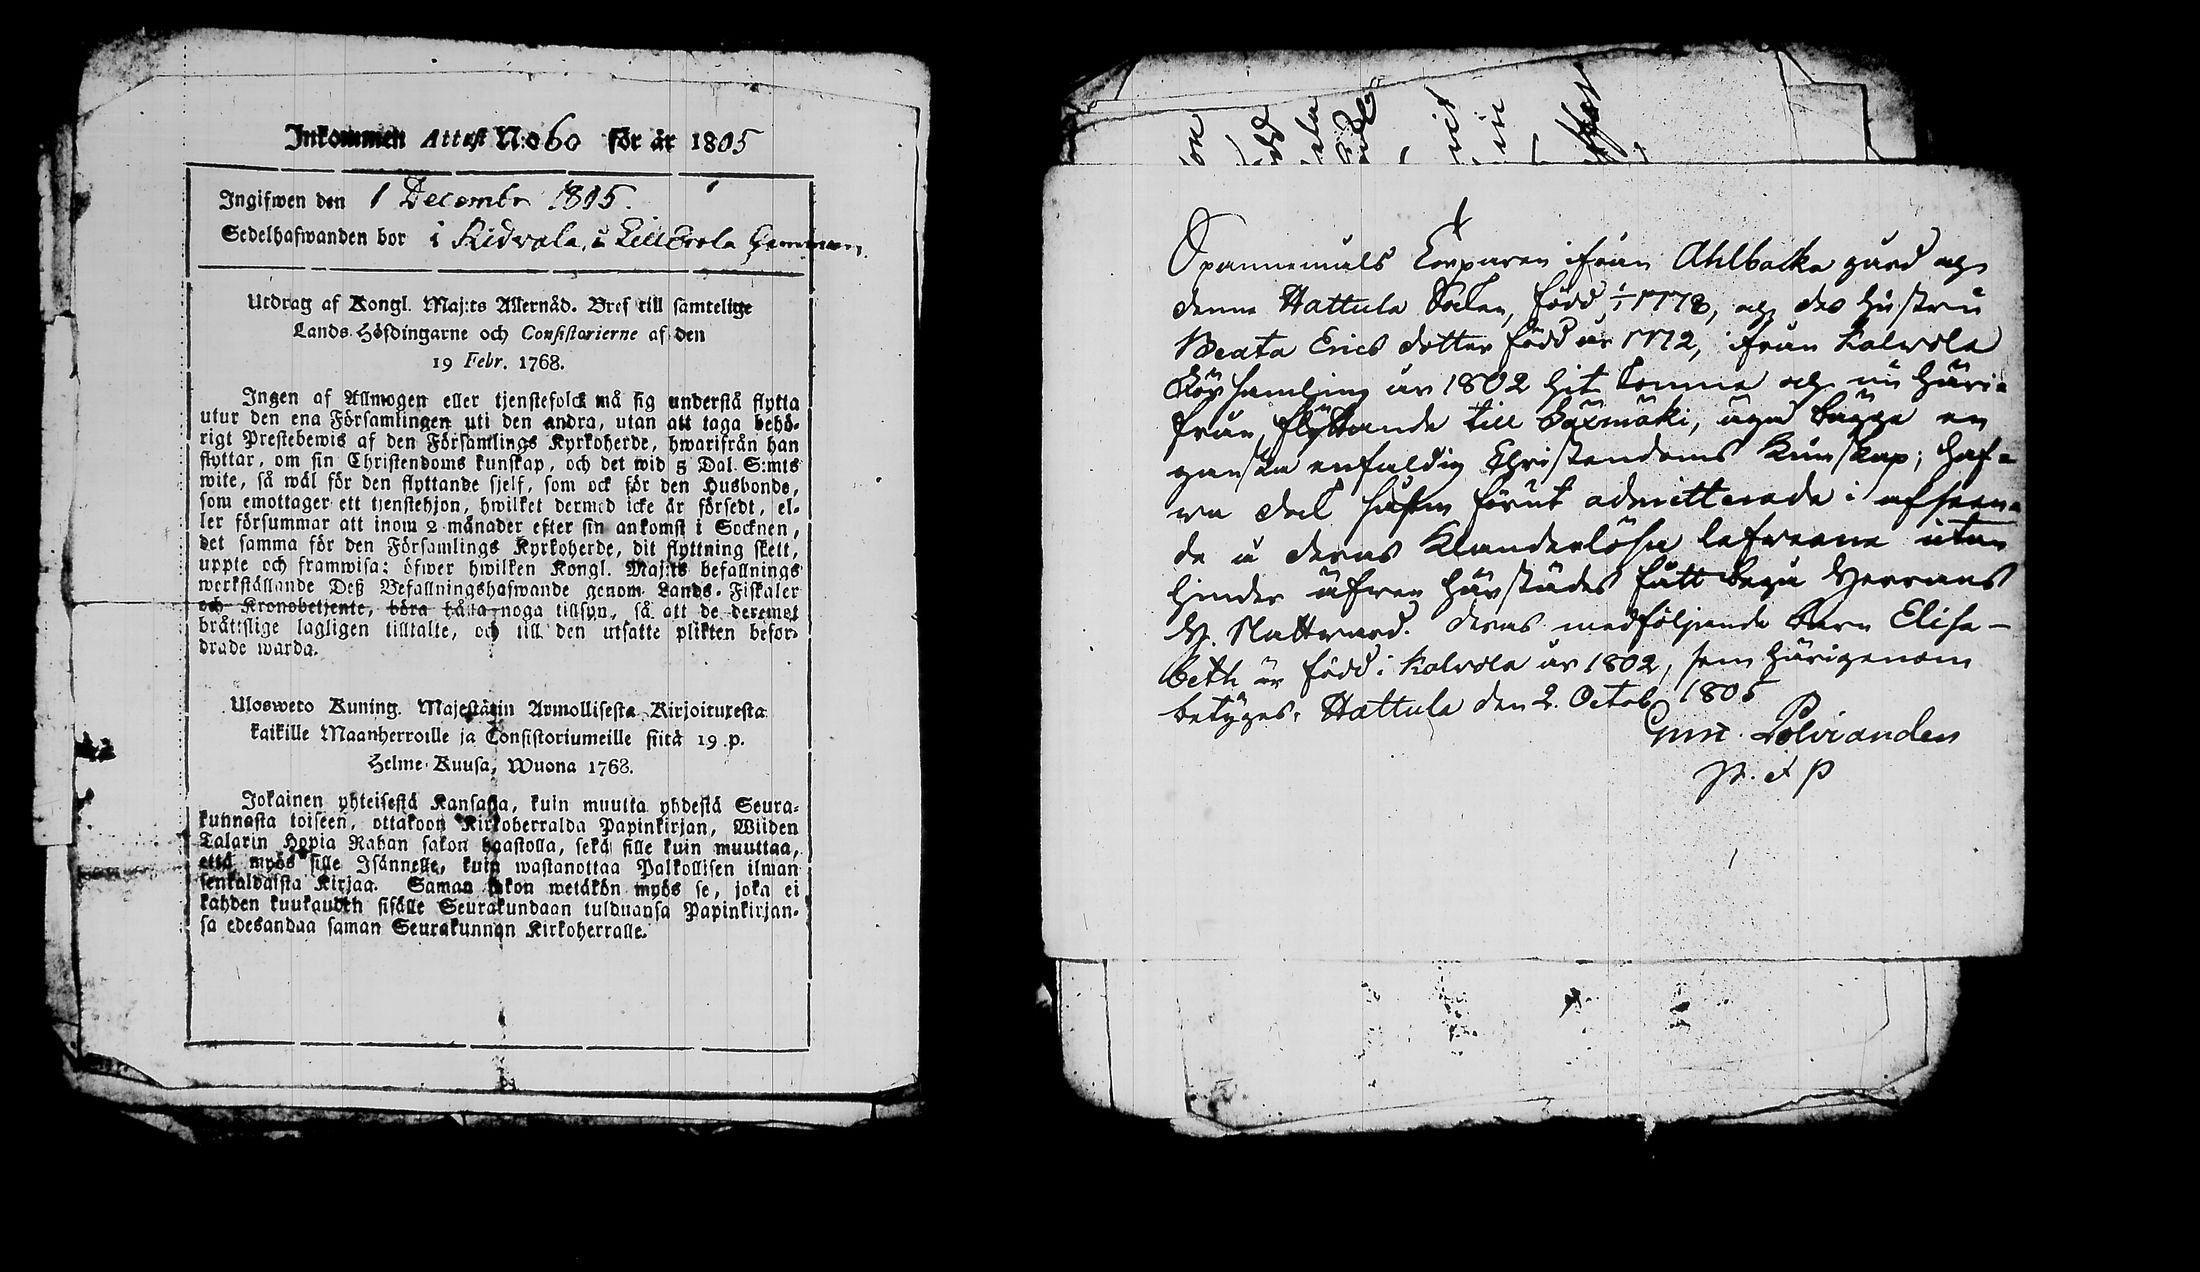 Inkommen Attest N:o 60 för år 1805
Ingifwen den 1 Decembr 1805.
Sedelhafwanden bor i Ridvala, å Lill Hemman.
Utdrag af Kongl. Maj:ts Allernåd. Bref till samtelige
Lands-Höfdingarne och Consistorierne af den
19 Febr. 1768.
Ingen af Allmogen eller tjenstefolck må sig understå flytta
utur den ena Församlingen uti den andra, utan att taga behö-
rigt Prestebewis af den Församlings Kyrkoherde, hwarifrån han
flyttar, om sin Christendoms kunskap, och det wid 5 Dal. S:mts
wite, så wäl för den flyttande sjelf, som ock för den Husbonde,
som emottager ett tjenstehjon, hwilket dermed icke är försedt, el-
ler försummar att inom 2 månader efter sin ankomst i Socknen,
det samma för den Församlings Kyrkoherde, dit flyttning skett,
uppte och framwisa: öfwer hwilken Kongl. Maj:ts befallnings
werkställande Deß Befallningshafwande genom Lands-Fiskaler
och Kronobetjente, böra hålla noga tillsyn, så att de deremot
bråttslige lagligen tilltalte, och till den utsatte plikten befor-
drade warda.
Ulosweto Kuning. Majestätin Armollisesta Kirjoituxesta
kaikille Maanherroille ja Consistoriumeille siitä 19 p.
Helme-Kuusa, Wuona 1768.
Jokainen yhteisestä Kansasta, kuin muutta yhdestä Seura-
kunnasta toiseen, ottakoon Kirkoherralda Papinkirjan, Wiiden
Talarin Hopia Rahan sakon haastolla, sekä sille kuin muuttaa,
että myös sille Isännelle, kuin wastanottaa Palkollisen ilman
senkaldaista Kirjaa. Saman sakon wetäkön myös se, joka ei
kahden kuukauden sisälle Seurakundaan tulduansa Papinkirjan-
sa edesandaa saman Seurakunnan Kirkoherralle.
Ofvannemnde Torparen ifrån Ahlbacka gård och
denna Hattula Socken, född 1778, och des hustru
Beata Ericsdotter född år 1772, ifrån Kalvola
Församling år 1802 hit komne och nu häri-
från flyttande till Säxmäki, äga bägge en
ganska enfaldig Christendoms Kunskap; haf-
wa dock såsom förut admitterade i afseen-
de å deras klanderlösa lefwerne utan
hinder äfwen härstädes fått begå Herrans
H. Nattward. Deras medföljande barn Elisa-
beth är född i Kalvola år 1802, som härigenom
betygas. Hattula den 2. Octob. 1805
Polviander